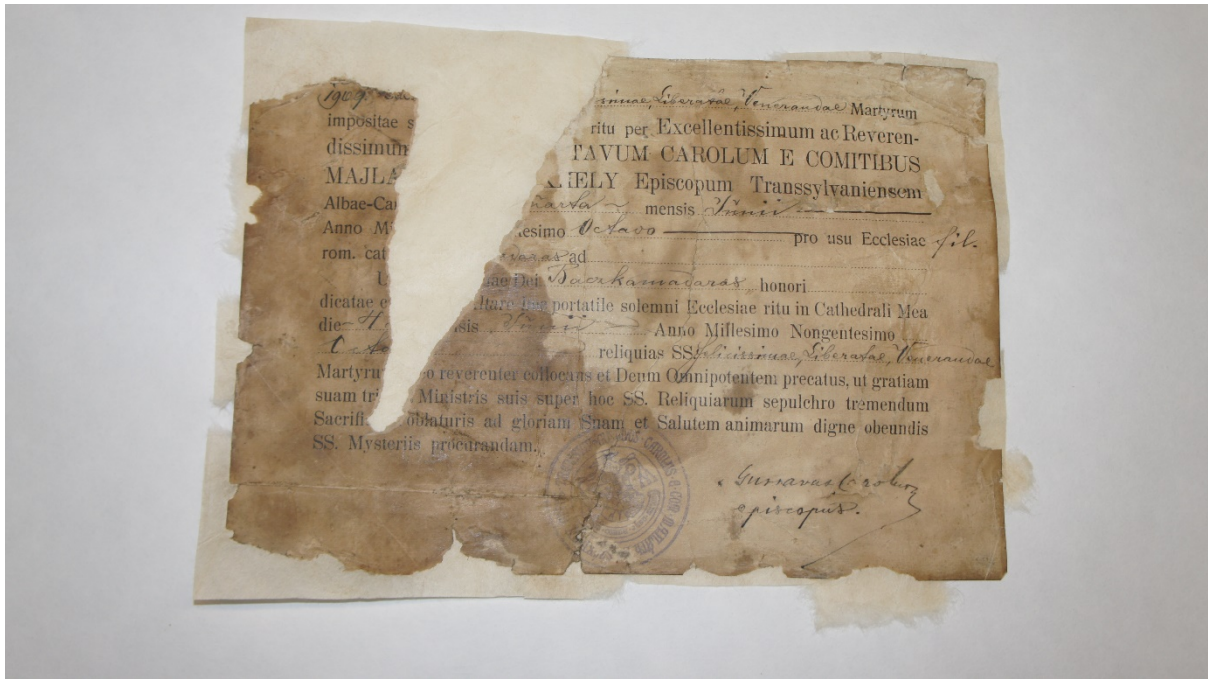 1909. ssimae, Liberatae, Venerandae Martyrum
impositae s ritu per Excellentissimum ac Reveren-
dissimum TAVUM CAROLUM E COMITIBUS
MAJLÁ HELY Episcopum Transsylvaniensem
Albae-Ca uarta mensis Junii
Anno M tesimo Octavo pro usu Ecclesiae fil.
rom. cat ad
U ae Dei Backamadaras honori
dicatae e ltare portatile solemni Ecclesiae ritu in Cathedrali Mea
die 4 sis Junii Anno Millesimo Nongentesimo
Octa reliquias SS. felicissimae, Liberatae, Venerandae
Martyru o reverenter collocans et Deum Omnipotentem precatus, ut gratiam
suam tri Ministris suis super hoc SS. Reliquiarum sepulchro tremendum
Sacrifi oblaturis ad gloriam Suam et Salutem animarum digne obeundis
SS. Mysteriis procurandam.
Gustavus Carolus
episcopus.